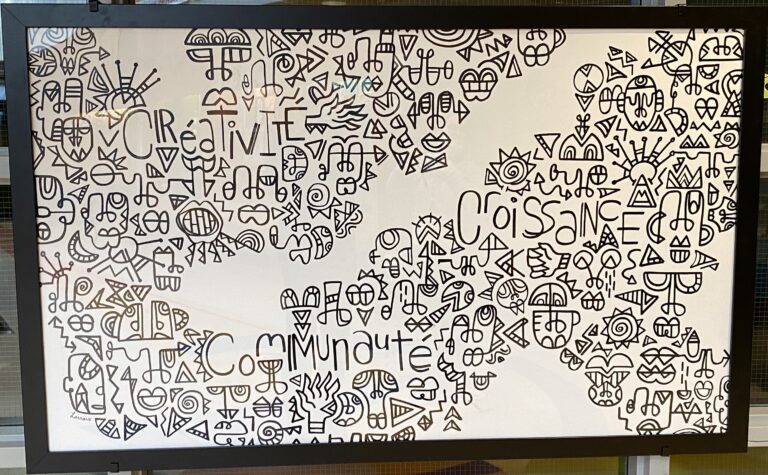 CRéativIté
CroissancE
CoMMunauté